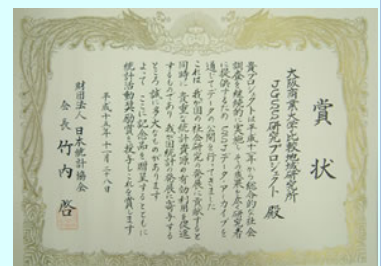 賞状
大阪商業大学比較地域研究所
JGSS研究プロジェクト 殿
貴プロジェクトは平成十一年から総合的な社会
調査を継続的に実施し その成果を広く研究者
に提供するため SSJデータアーカイブを
通じてデータの公開を行ってきました
これは 我が国の社会研究の発展に貢献すると
同時に 貴重な統計資源の有効利用を促進
するものであり 我が国統計の発展に寄与する
ところ誠に多大なものがあります
よって ここに記念品を贈呈するとともに
統計活動奨励賞を授与しこれを賞します
平成十五年十一月二十八日
財団法人 日本統計協会
会長 竹内 啓